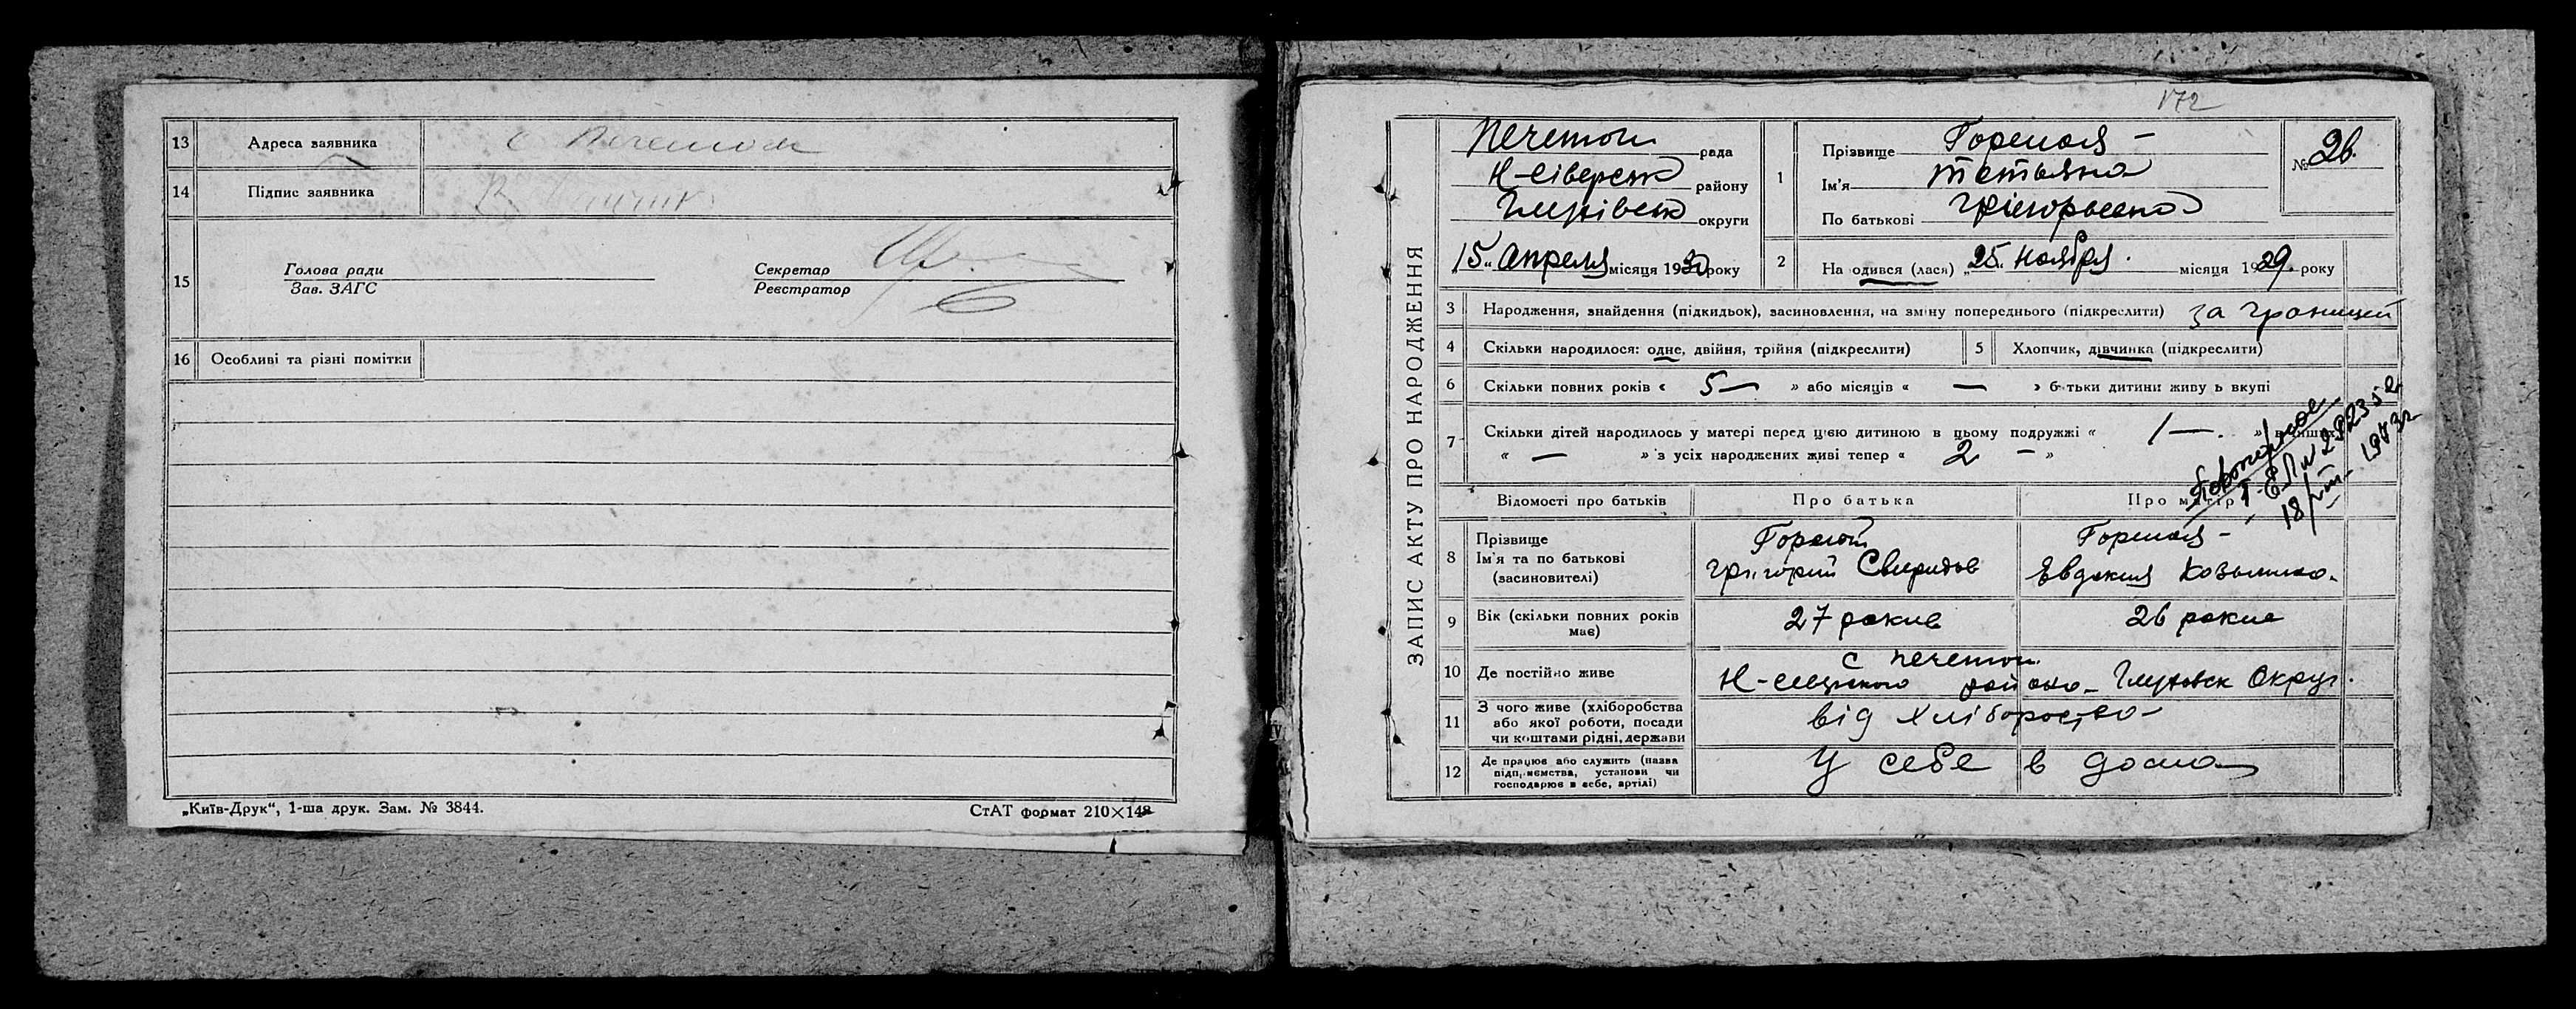 13 Адреса заявника с
14 Підпис заявника
15 Голова ради
Зав. ЗАГС
Секретар
Реєстратор
16 Особливі та різні помітки
„Київ-Друк“, 1-ша друк. Зам. № 3844.
СтАТ формат 210×148
172
ЗАПИС АКТУ ПРО НАРОДЖЕННЯ
рада
Н-Сіверськ району
Глухівськ округи
„15„ Апреля місяця 1930 року
1 Прізвище
Ім'я Тетьяна
По батькові
№ 26.
2 На одився (лася) „25„ Ноября. місяця 1929. року
3 Народження, знайдення (підкидьок), засиновлення, на зміну попереднього (підкреслити) за границей
4 Скільки народилося: одне, двійня, трійня (підкреслити)
5 Хлопчик, дівчинка (підкреслити)
6 Скільки повних років « 5— » або місяців « — » б тьки дитини живу ь вкупі
7 Скільки дітей народилось у матері перед цією дитиною в цьому подружжі « 1—. »
« — » з усіх народжених живі тепер « 2 — »
Повторное
18/VIII- 1973г
Відомості про батьків
Про батька
Про матір
8 Прізвище
Ім'я та по батькові
(засиновителі)
Григорий Свиридов
Евдокия
9 Вік (скільки повних років
має)
27 рокив
26 рокив
10 Де постійно живе
с
Глуховск Округ.
11 З чого живе (хліборобства
або якої роботи, посади
чи коштами рідні, держави
від хліборобства
12 Де працює або служить (назва
підприємства, установи чи
господарює в себе, артілі)
У себе в дома